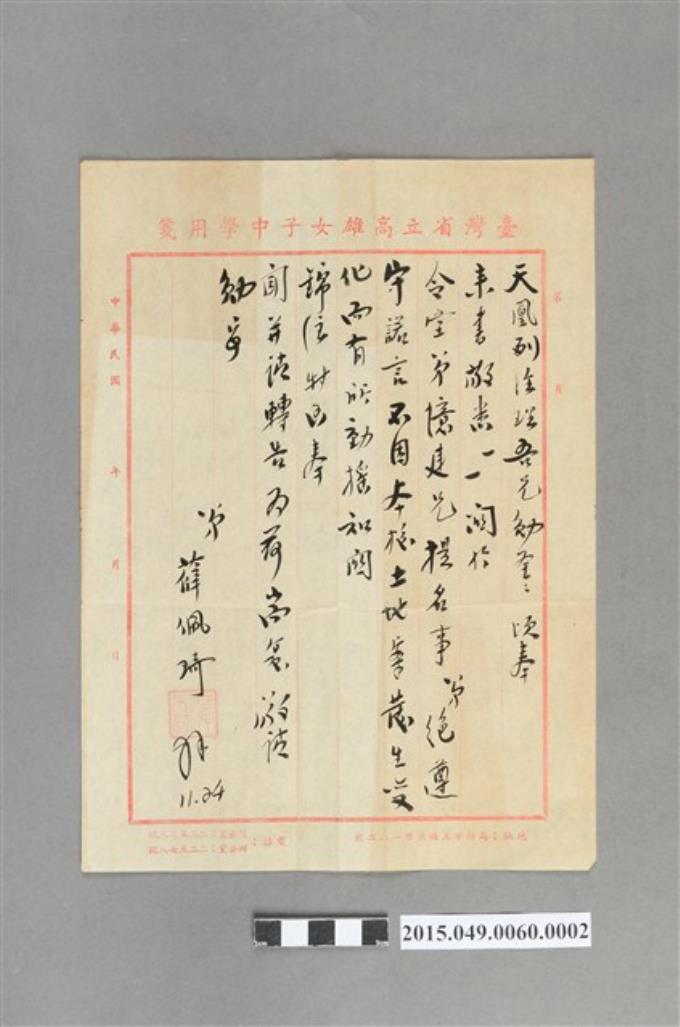 臺灣省立高雄女子中學用箋
天鳳列途瑞吾兄勛鑒：頃奉
來書敬悉一一關於
令堂弟憶建兄提名事 弟絕遵
守諾言不因本格土地案發生變
化而有所動搖知關
錦注 奉
聞并請轉告為荷 敬請
勛安
弟
薛佩琦 拜
11.24
中華民國 年 月 日
第 頁
電話：
地址：高雄市
2015.049.0060.0002